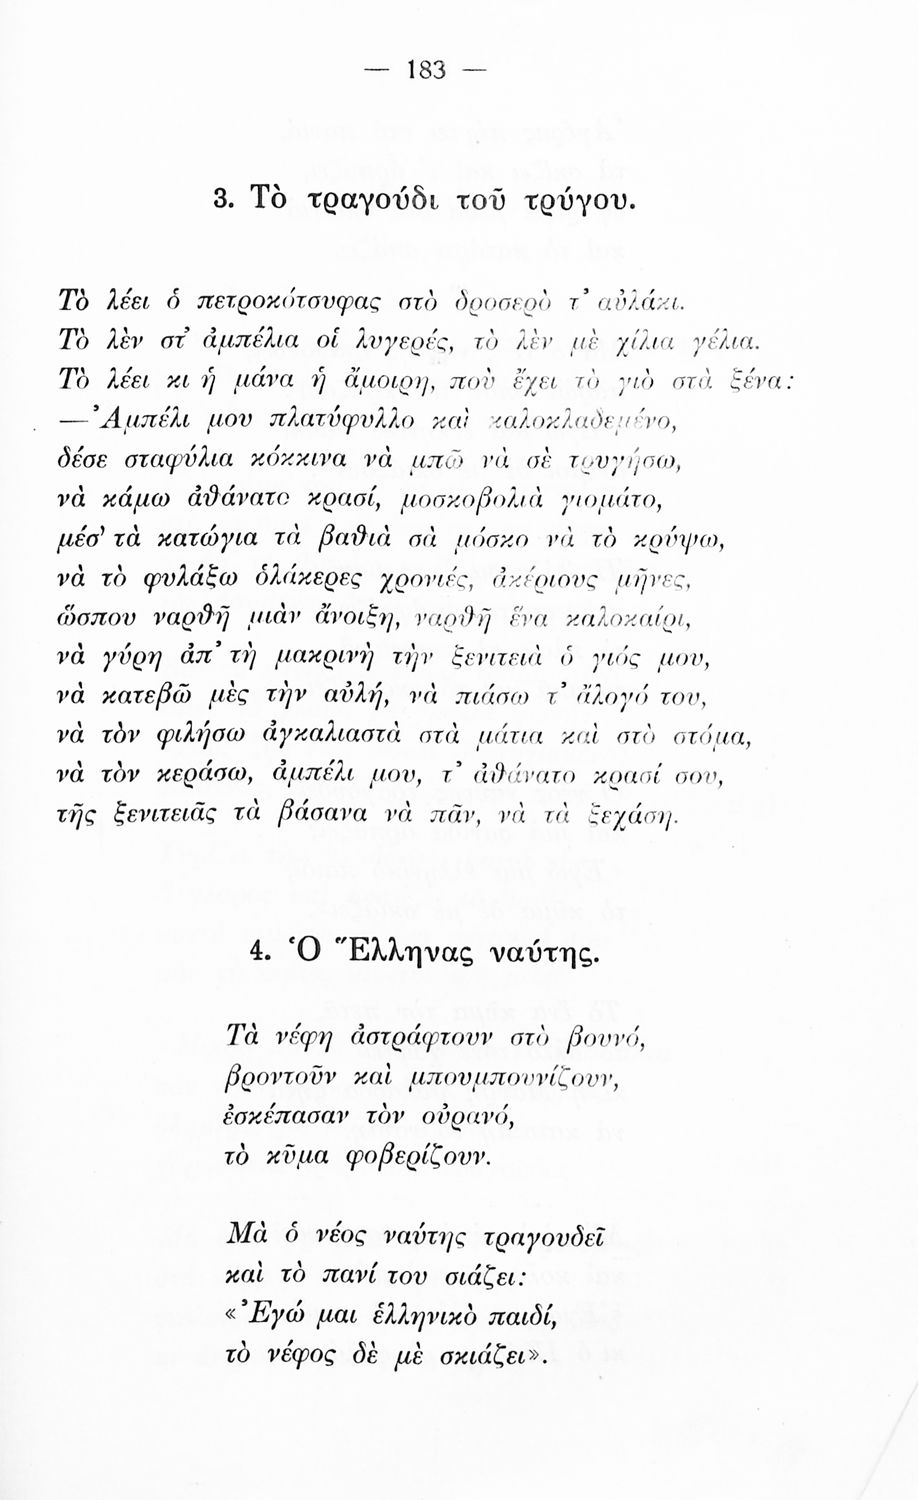 — 183 —
3. Τὸ τραγούδι τοῦ τρύγου.
Τὸ λέει ὁ πετροκότσυφας στὸ δροσερὸ τ’ αὐλάκι.
Τὸ λὲν στ’ ἀμπέλια οἱ λυγερές, τὸ λὲν μὲ χίλια γέλια.
Τὸ λέει κι ἡ μάνα ἡ ἄμοιρη, ποὺ ἔχει τὸ γιὸ στὰ ξένα:
— Ἀμπέλι μου πλατύφυλλο καὶ καλοκλαδεμένο,
δέσε σταφύλια κόκκινα νὰ μπῶ νὰ σὲ τρυγήσω,
νὰ κάμω ἀθάνατο κρασί, μοσκοβολιὰ γιομάτο,
μέσ’ τὰ κατώγια τὰ βαθιὰ σὰ μόσκο νὰ τὸ κρύψω,
νὰ τὸ φυλάξω ὁλάκερες χρονιές, ἀκέριους μῆνες,
ὥσπου ναρθῆ μιὰν ἄνοιξη, ναρθῆ ἕνα καλοκαίρι,
νὰ γύρη ἀπ’ τὴ μακρινὴ τὴν ξενιτειὰ ὁ γιός μου,
νὰ κατεβῶ μὲς τὴν αὐλή, νὰ πιάσω τ’ ἄλογό του,
νὰ τὸν φιλήσω ἀγκαλιαστὰ στὰ μάτια καὶ στὸ στόμα,
νὰ τὸν κεράσω, ἀμπέλι μου, τ’ ἀθάνατο κρασί σου,
τῆς ξενιτειᾶς τὰ βάσανα νὰ πᾶν, νὰ τὰ ξεχάση.
4. Ὁ Ἕλληνας ναύτης.
Τὰ νέφη ἀστράφτουν στὸ βουνό,
βροντοῦν καὶ μπουμπουνίζουν,
ἐσκέπασαν τὸν οὐρανό,
τὸ κῦμα φοβερίζουν.
Μὰ ὁ νέος ναύτης τραγουδεῖ
καὶ τὸ πανί του σιάζει:
«Ἐγώ μαι ἑλληνικὸ παιδί,
τὸ νέφος δὲ μὲ σκιάζει».